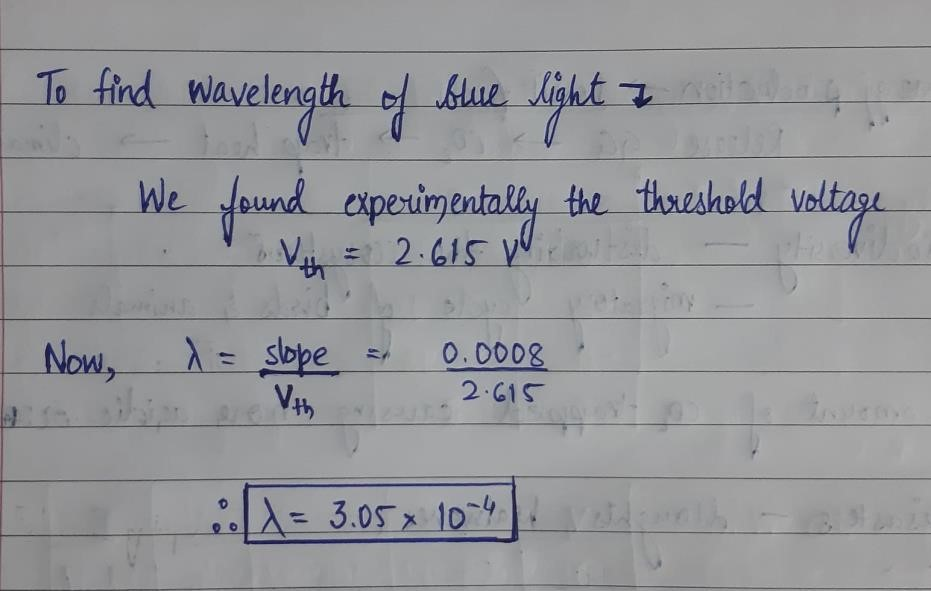 To find wavelength of blue light ↴
We found experimentally the threshold voltage
V_th = 2.615 V
Now, λ = slope / V_th = 0.0008 / 2.615
∴ λ = 3.05 × 10⁻⁴